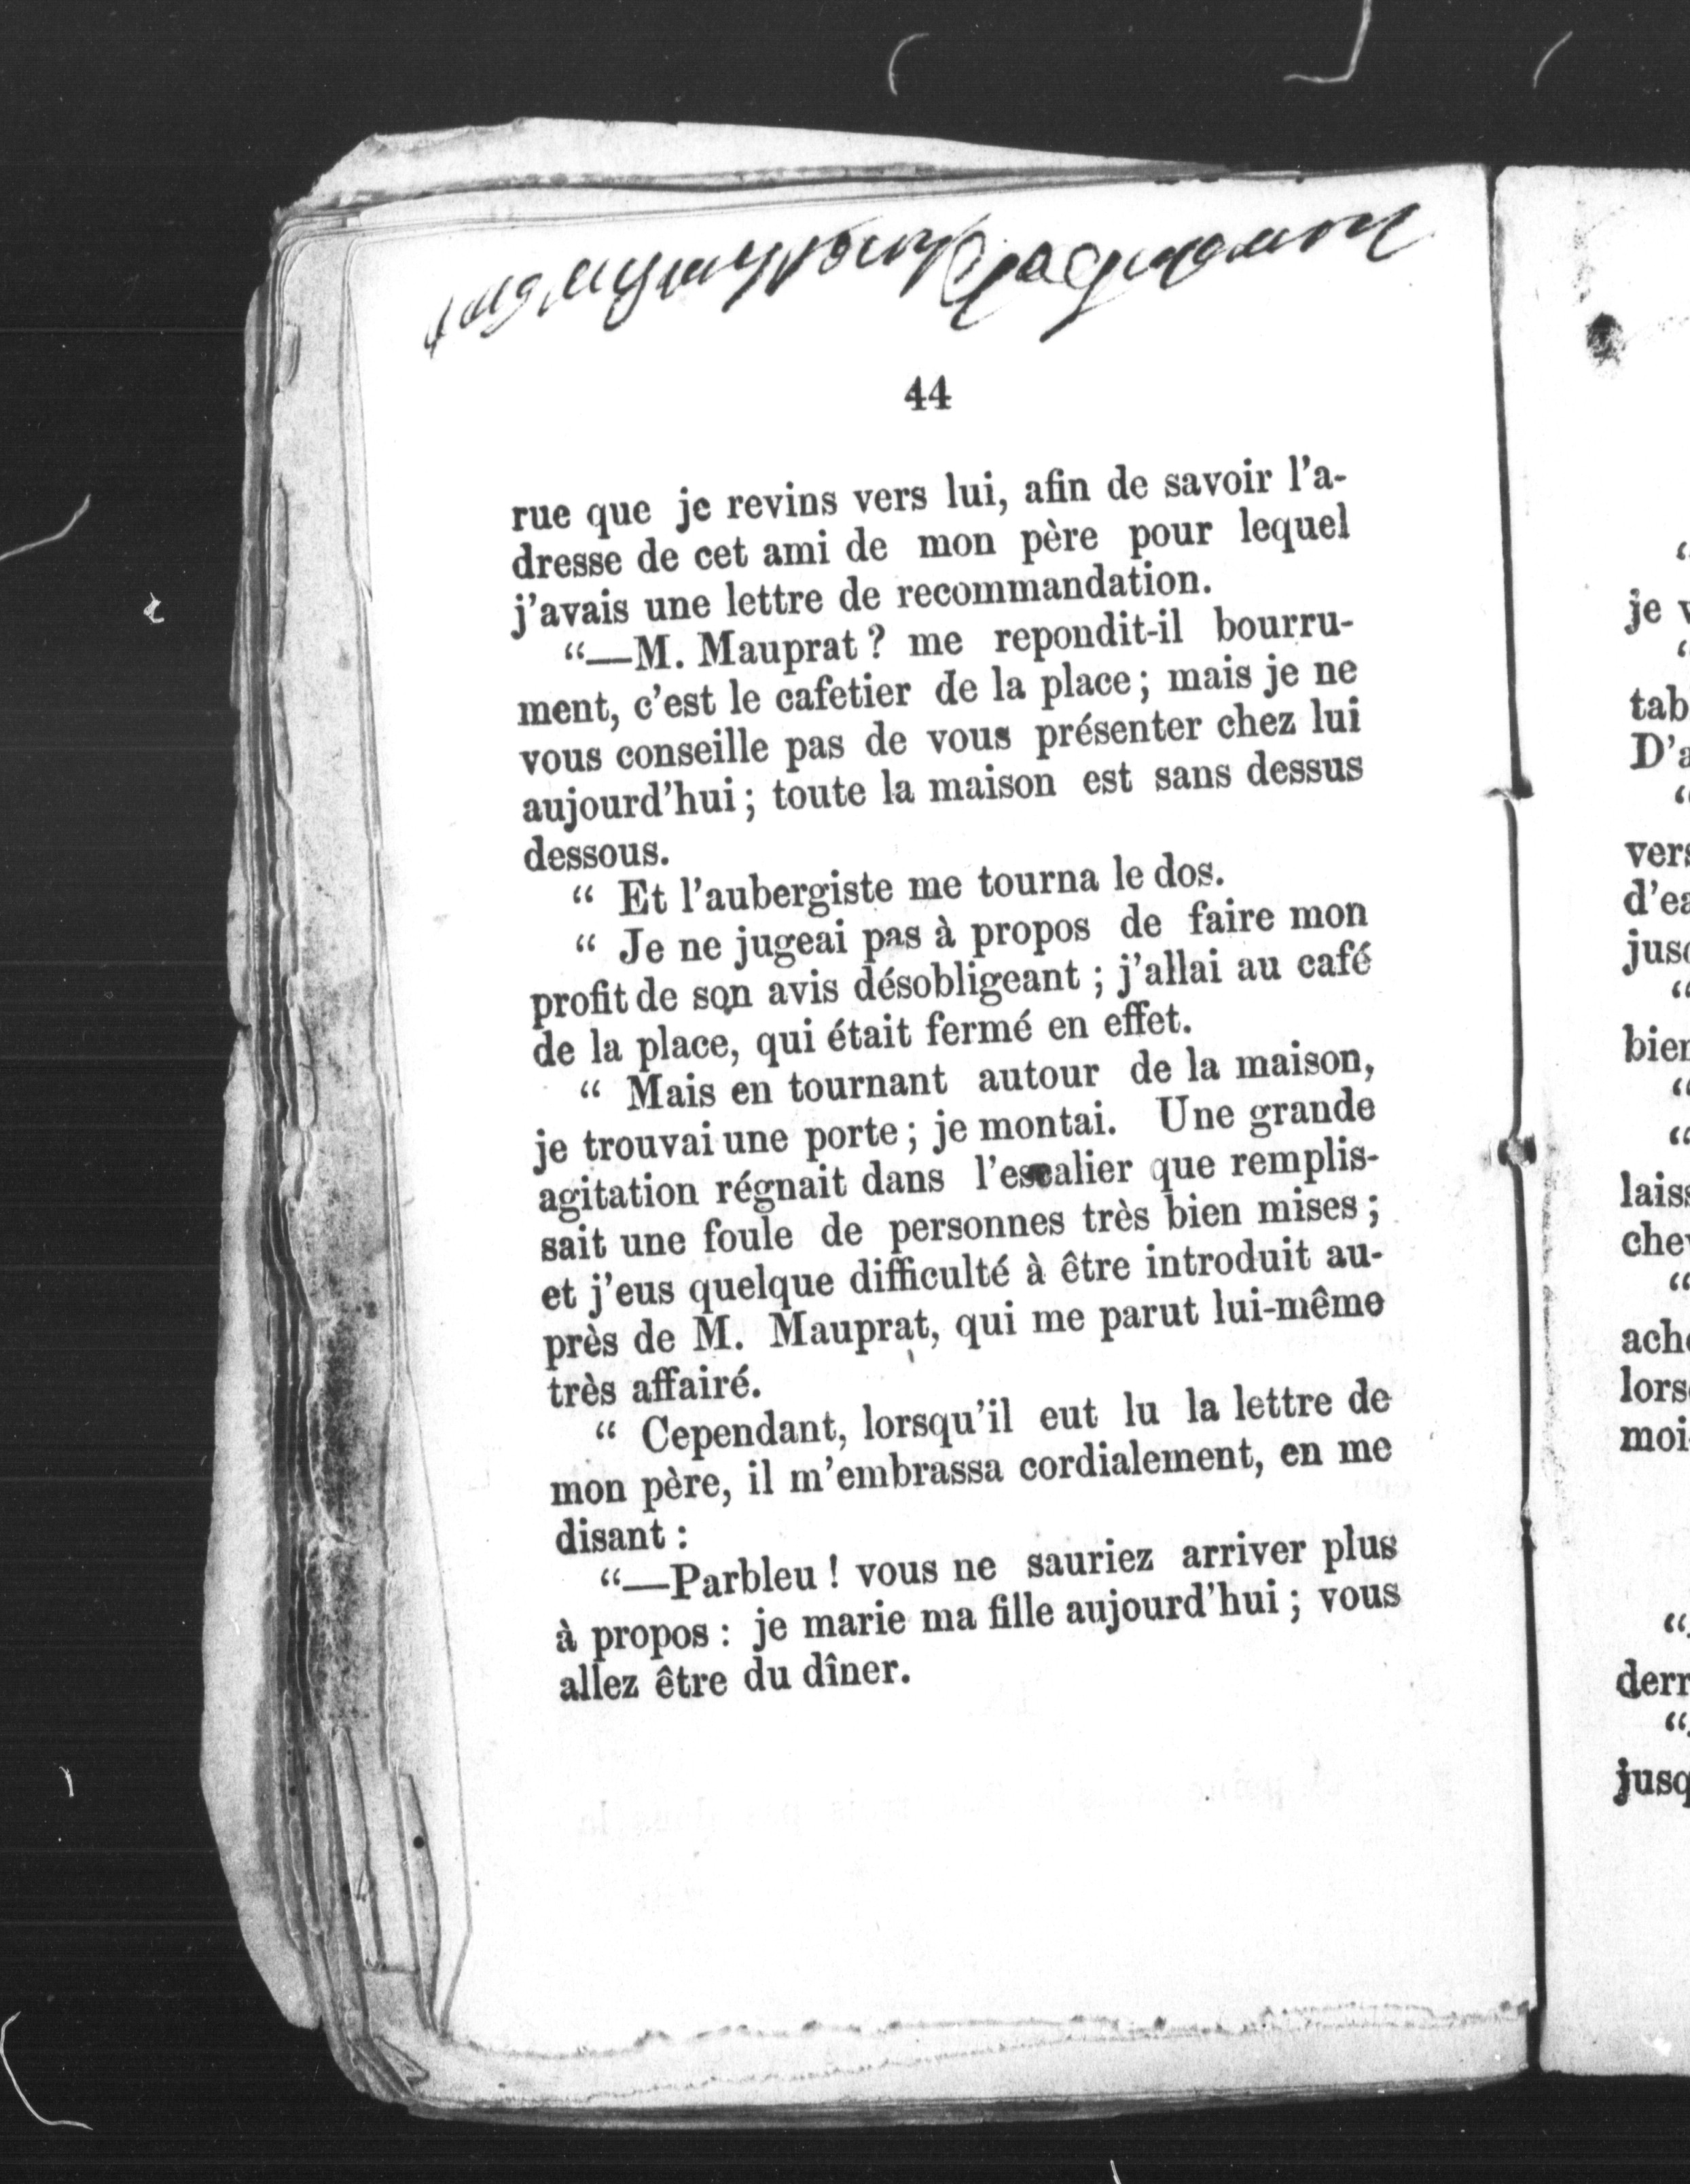 44
rue que je revins vers lui, afin de savoir l'a-
dresse de cet ami de mon père pour lequel
j'avais une lettre de recommandation.
“—M. Mauprat ? me repondit-il bourru-
ment, c'est le cafetier de la place ; mais je ne
vous conseille pas de vous présenter chez lui
aujourd'hui ; toute la maison est sans dessus
dessous.
“ Et l'aubergiste me tourna le dos.
“ Je ne jugeai pas à propos de faire mon
profit de son avis désobligeant ; j'allai au café
de la place, qui était fermé en effet.
“ Mais en tournant autour de la maison,
je trouvai une porte ; je montai. Une grande
agitation régnait dans l'escalier que remplis-
sait une foule de personnes très bien mises ;
et j'eus quelque difficulté à être introduit au-
près de M. Mauprat, qui me parut lui-même
très affairé.
“ Cependant, lorsqu'il eut lu la lettre de
mon père, il m'embrassa cordialement, en me
disant :
“—Parbleu ! vous ne sauriez arriver plus
à propos : je marie ma fille aujourd'hui ; vous
allez être du dîner.
“
je
“
“
“
“
“
“
“
“